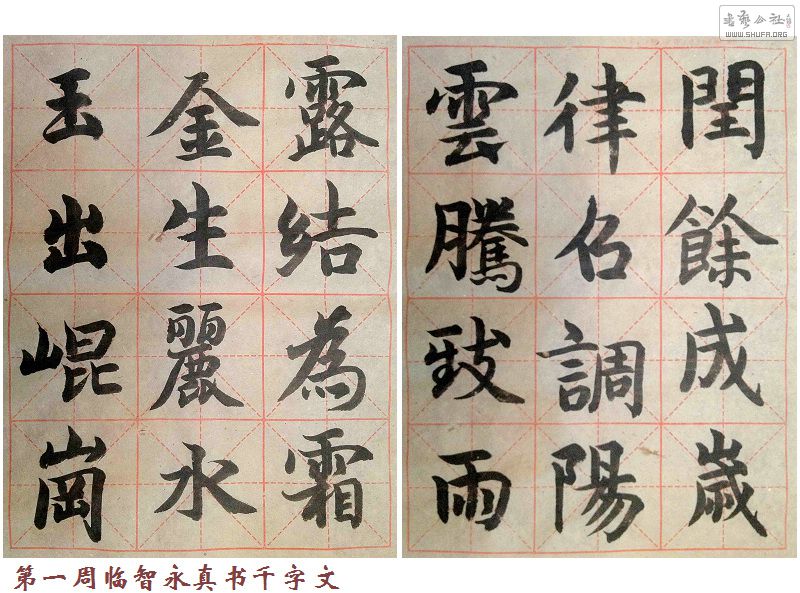 書藝公社
WWW.SHUFA.ORG
閏餘成歲
律召調陽
雲騰致雨
露結為霜
金生麗水
玉出崐崗
第一周临智永真书千字文